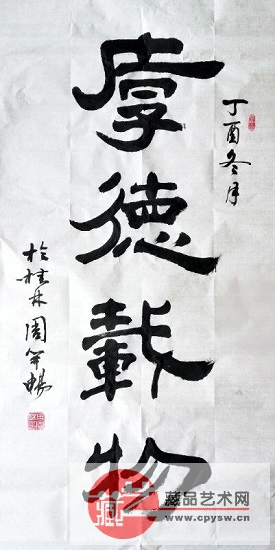 丁酉冬月
厚德载物
於桂林周军畅
藏
藏品艺术网
www.cpysw.cn